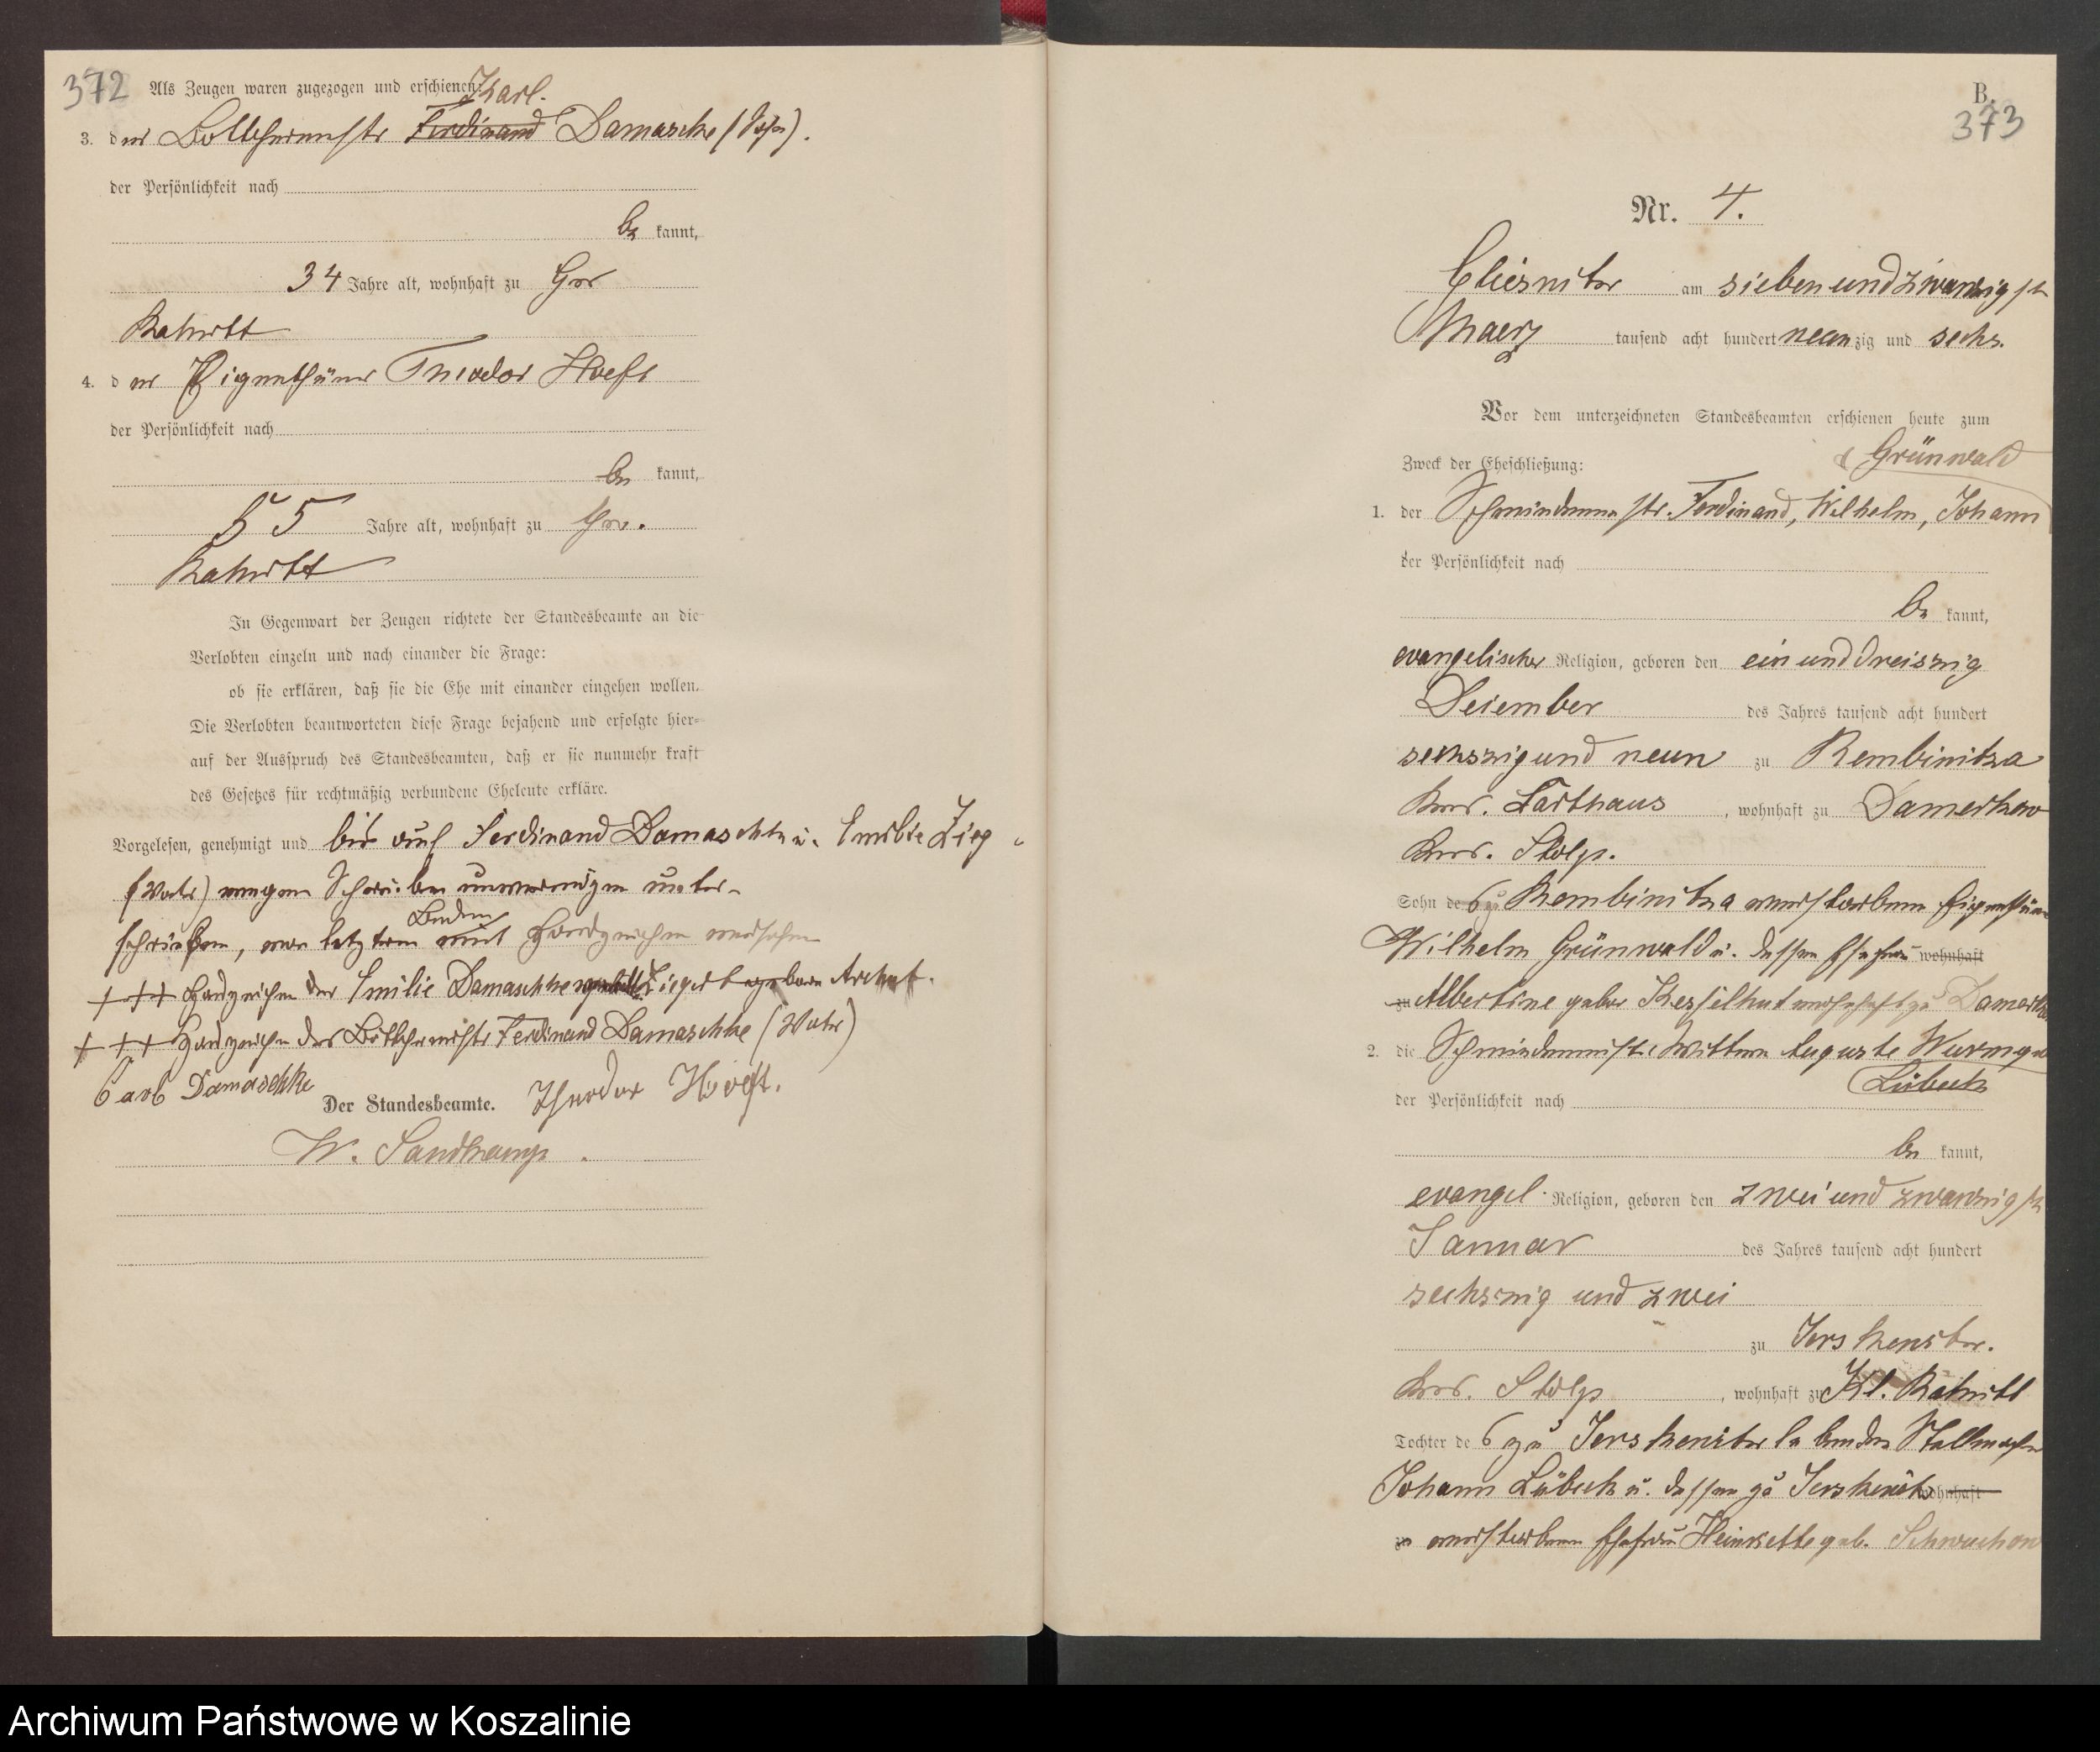 372 Als Zeugen waren zugezogen und erschienen:
Karl.
3. der Ferdinand Damaschke (Sohn).
der Persönlichkeit nach
be kannt,
34 Jahre alt, wohnhaft zu Gr
Rakitt
4. der Eigenthümer Theodor
der Persönlichkeit nach
be kannt,
55 Jahre alt, wohnhaft zu Gr.
Rakitt
In Gegenwart der Zeugen richtete der Standesbeamte an die
Verlobten einzeln und nach einander die Frage:
ob sie erklären, daß sie die Ehe mit einander eingehen wollen.
Die Verlobten beantworteten diese Frage bejahend und erfolgte hier-
auf der Ausspruch des Standesbeamten, daß er sie nunmehr kraft
des Gesetzes für rechtmäßig verbundene Eheleute erkläre.
Vorgelesen, genehmigt und bis auf Ferdinand Damaschke u. Emilie Zieg
(Vater) wegen Schreiben unvermögen unter-
Beiden
schrieben, von letzteren mit Handzeichen versehen
+++ Handzeichen der Emilie Damaschke Ziegert geborn
+++ Handzeichen des Ferdinand Damaschke (Vater)
Carl Damaschke
Der Standesbeamte. Theodor
W. Sandkamp.
B.
373
Nr. 4.
am siebenundzwanzigst
Maerz tausend acht hundert neun zig und sechs.
Vor dem unterzeichneten Standesbeamten erschienen heute zum
Zweck der Eheschließung:
Grünwald
1. der Ferdinand, Wilhelm, Johann
der Persönlichkeit nach
be kannt,
evangelischer Religion, geboren den ein und dreiszig
Dezember des Jahres tausend acht hundert
sechszig und neun zu Rembinitza
Krs. Carthaus, wohnhaft zu Damerkow
Krs. Stolp.
Sohn des zu Rembinitza verstorbenen Eigenthüm
Wilhelm Grünwald u. dessen Ehefrau wohnhaft
zu Albertine gebor Kesselhut wohnhaft zu Damerkow
2. die Wittwe Auguste Wurm geb
Lübeck
der Persönlichkeit nach
be kannt,
evangel. Religion, geboren den zwei und zwanzigst
Januar des Jahres tausend acht hundert
sechszig und zwei
zu Jerskewitz.
Krs. Stolp, wohnhaft zu Kl. Rakitt
Tochter des zu Jerskewitz lebenden Stellmacher
Johann Lübeck u. dessen zu Jerskewitz wohnhaft
zu verstorbenen Ehefrau Heinriette geb. Schwuchow
Archiwum Państwowe w Koszalinie